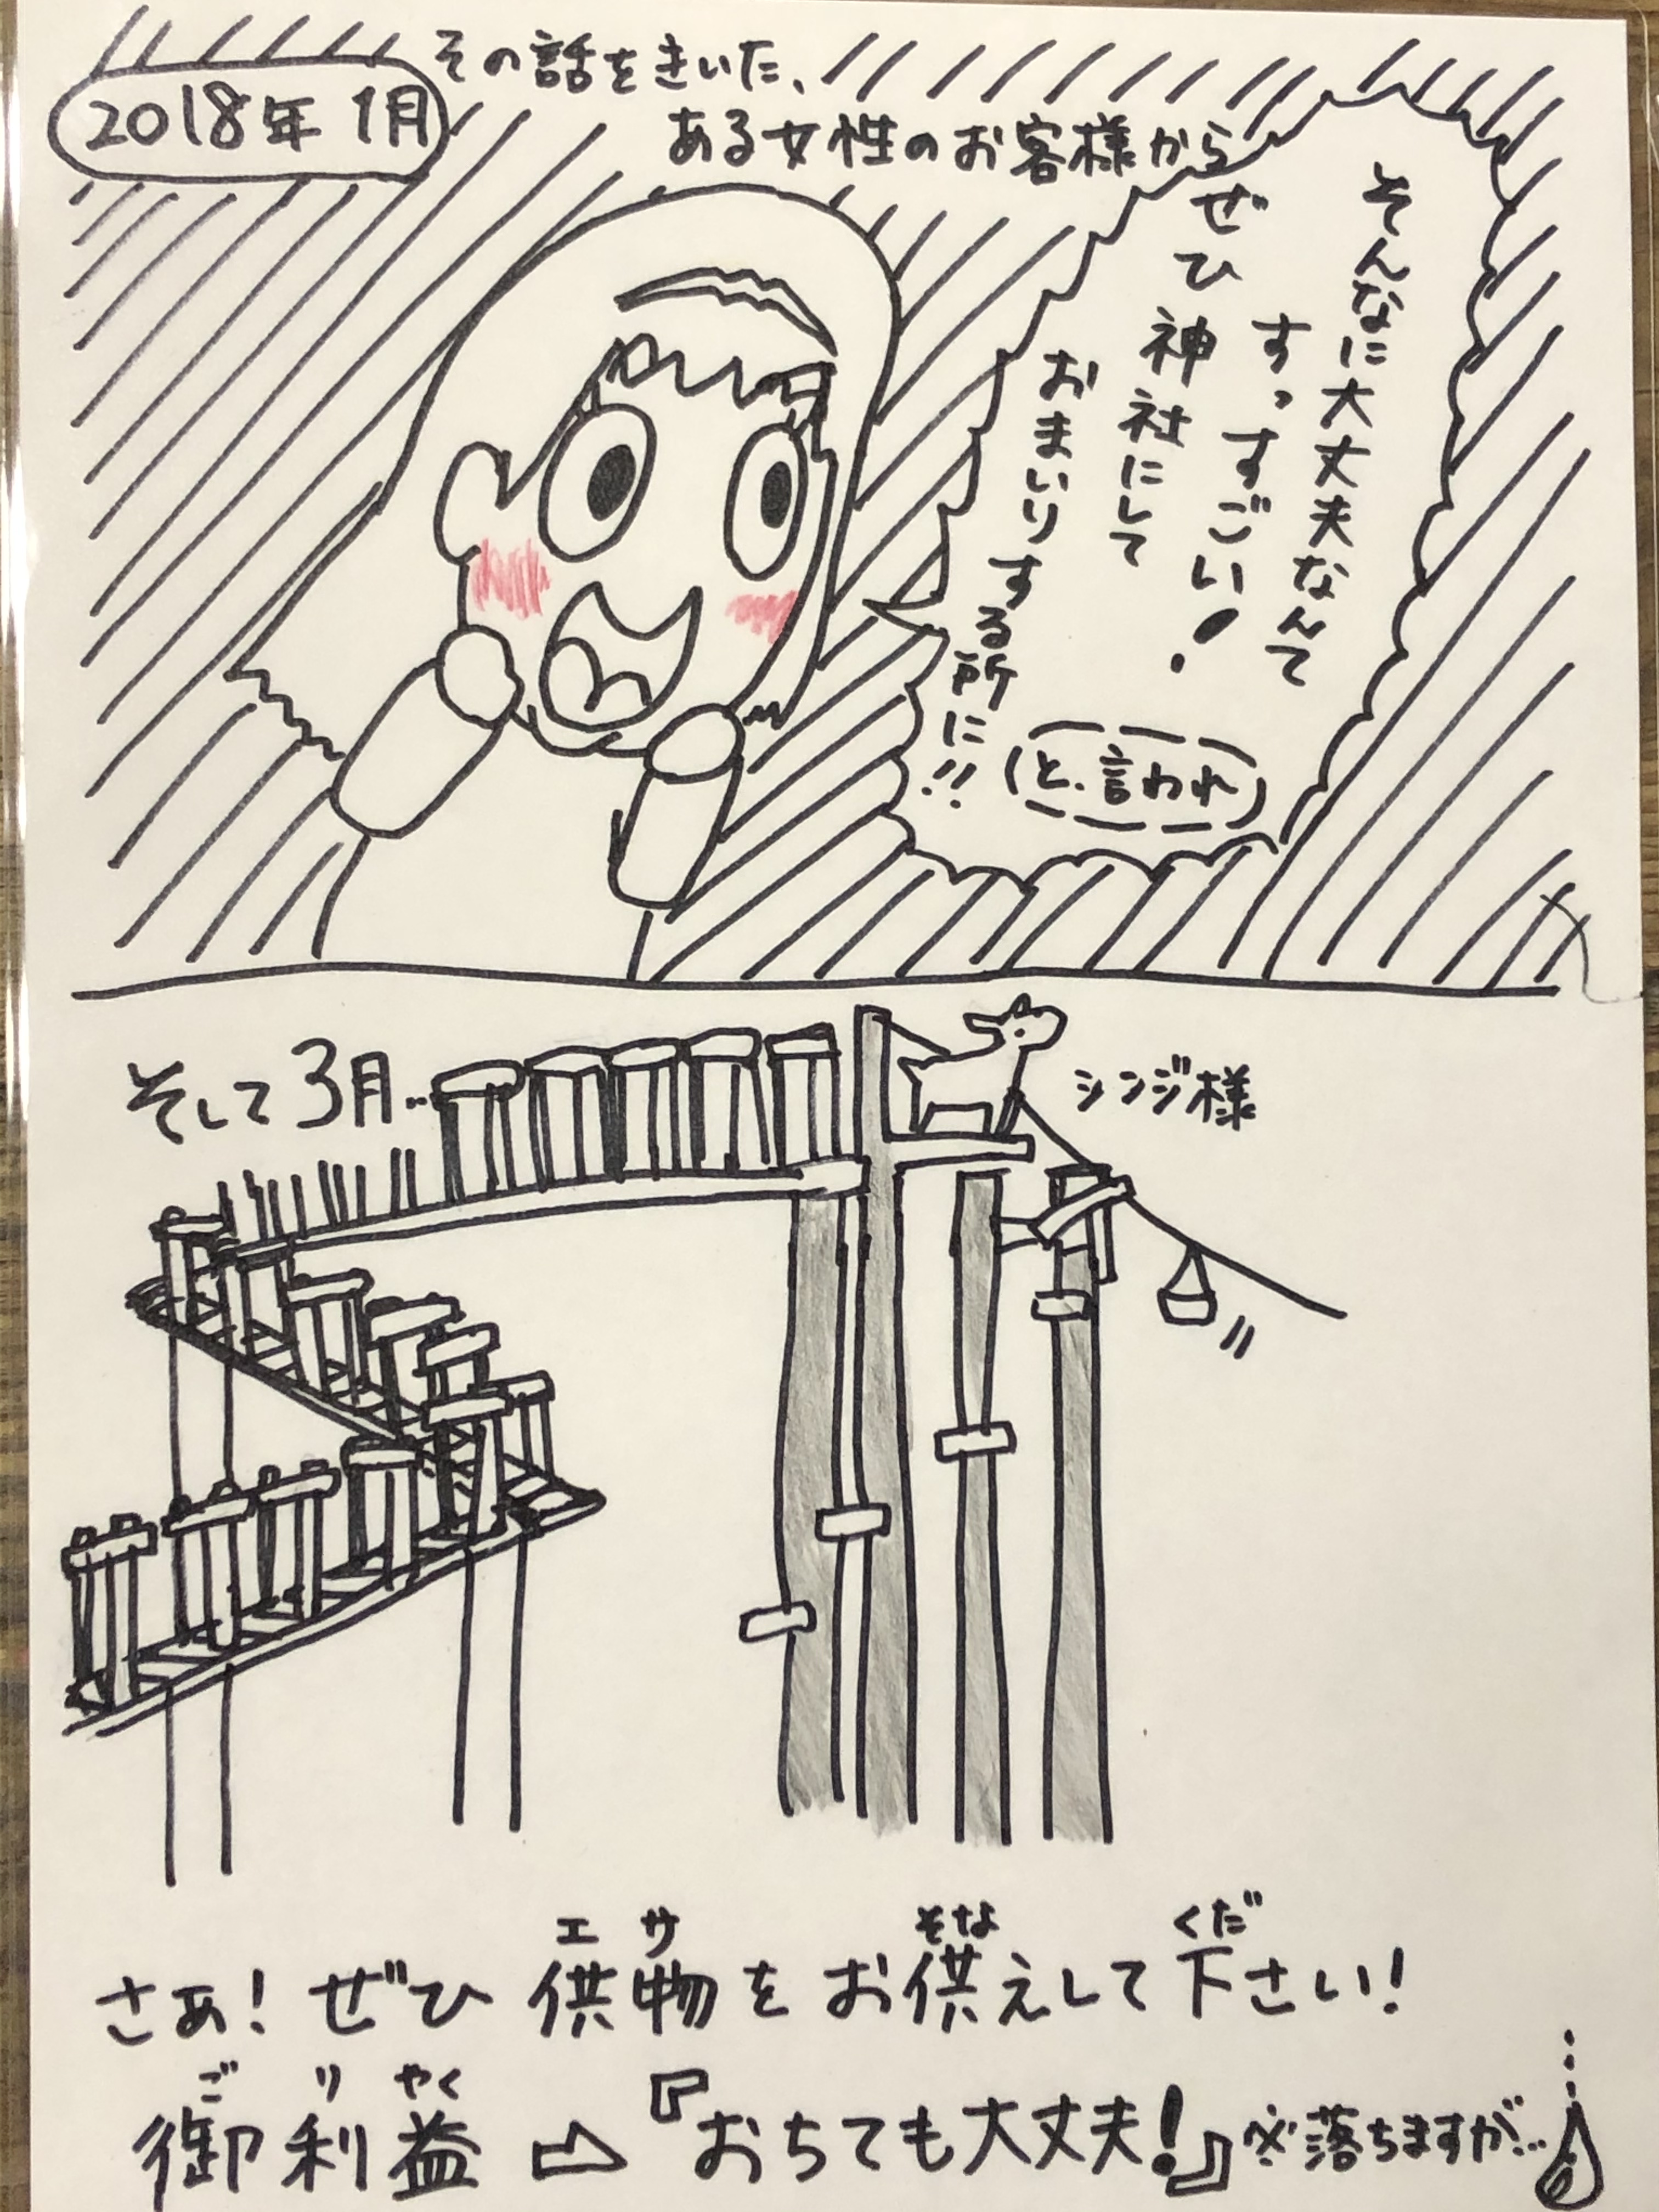 2018年1月
その話をきいた、
ある女性のお客様から
そんなに大丈夫なんて
すっすごい!
ぜひ神社にして
おまいりする所に!!
(と.言われ)
そして3月…
シンジ様
エサ そな くだ
さぁ!ぜひ供物をお供えして下さい!
ごりやく
御利益⇨『おちても大丈夫!』※落ちますが…